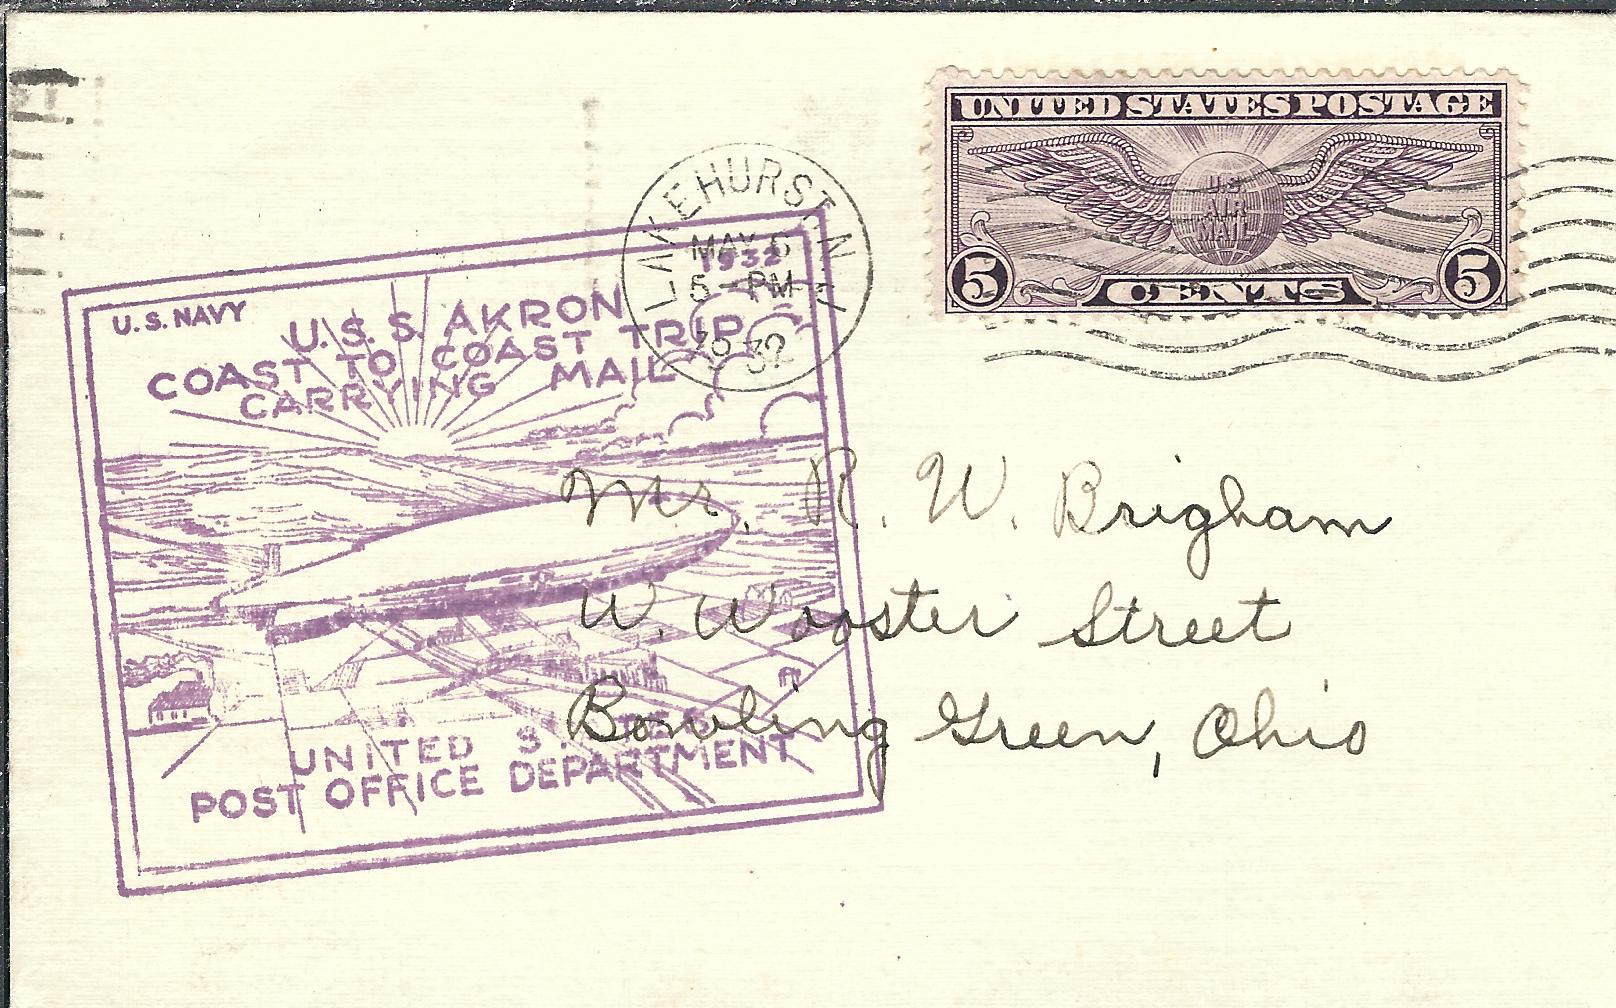 UNITED STATES POSTAGE
U.S.
AIR
MAIL
5 CENTS 5
LAKEHURST N.J.
MAY 6
5 - PM
1932
U.S. NAVY
1932
U.S.S. AKRON
COAST TO COAST TRIP
CARRYING MAIL
UNITED STATES
POST OFFICE DEPARTMENT
Mr. R. W. Brigham
W. Wooster Street
Bowling Green, Ohio